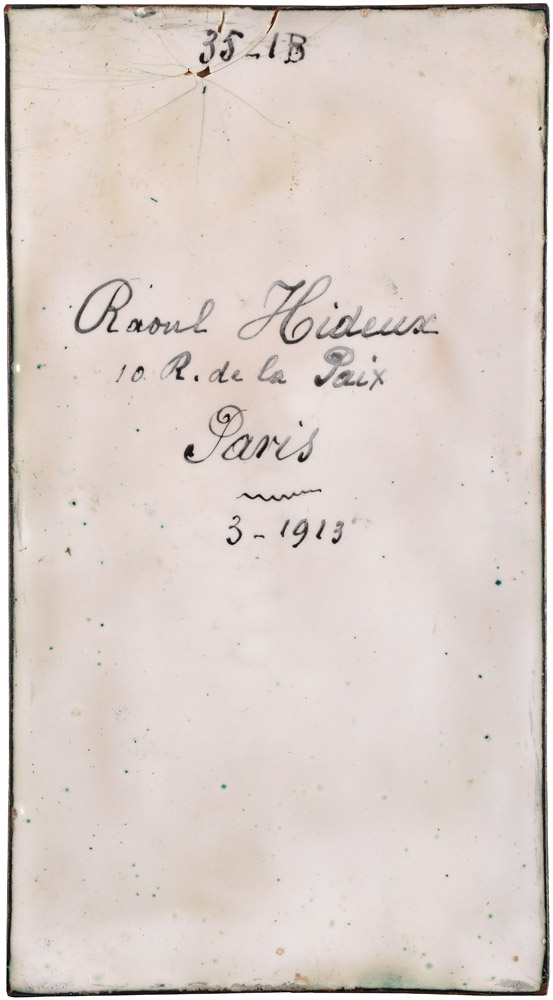 35-1B
Raoul Hideux
10 R. de la Paix
Paris
3-1913